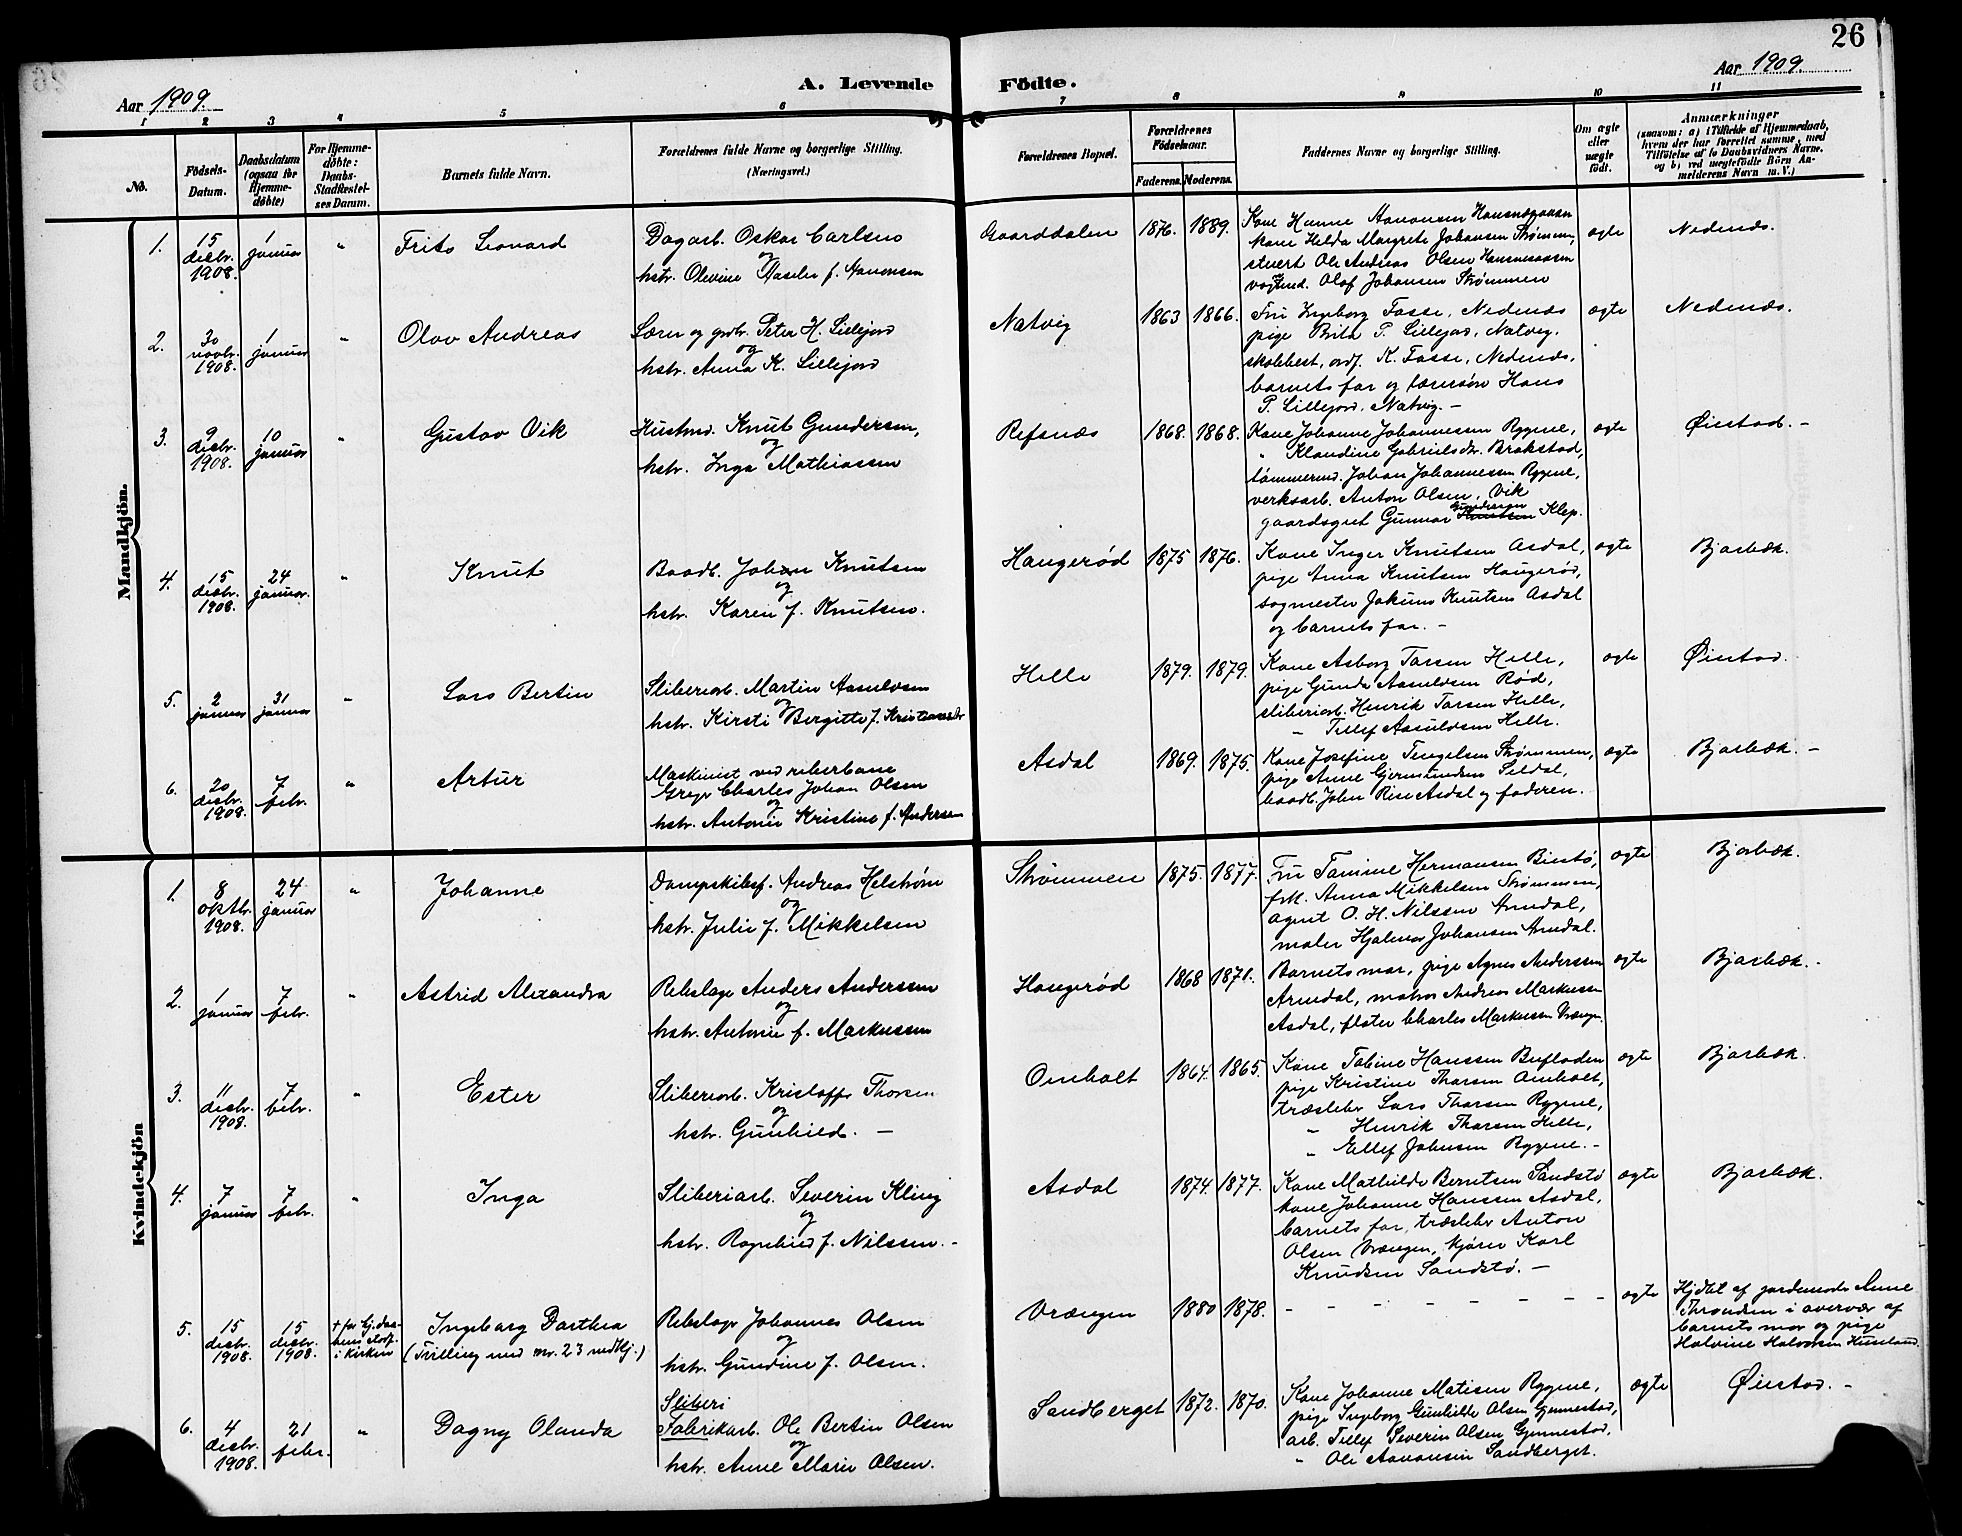 26
Aar 1909.
A. Levende Födte.
Aar 1909.
1 2 3 4 5 6 7 8 9 10 11
No.
Födsels-
Datum.
Daabsdatum
(ogsaa for
Hjemme-
döbte)
For Hjemme-
döbte:
Daabs-
Stadfæstel-
ses Datum.
Barnets fulde Navn.
Forældrenes fulde Navne og borgerlige Stilling.
(Næringsvei.)
Forældrenes Bopæl.
Forældrenes
Födselsaar.
Faderens. Moderens.
Faddernes Navne og borgerlige Stilling.
Om ægte
eller
uægte
født.
Anmærkninger
(saasom: a) i Tilfælde af Hjemmedaab,
hvem der har forrettet samme, med
Tilføielse af to Daabsvidners Navne,
og b) ved uægtefødte Börn An-
melderens Navn m. V.)
Mandkjön.
1. 15 decbr. 1908. 1 januar " Frits Leonard
Dagarb. Oskar Carlsen
og
hstr. Olevine f. Aanonsen
Gaarddalen 1876. 1889.
Kone Hanne Aanonsen
kone Helda Margrete Johansen Strømmen,
stuert Ole Andreas Olsen
Olaf Johansen Strømmen
ægte Nedenæs.
2. 30 novbr. 1908. 1 januar " Olav Andreas
Lærer og grdbr. Peter H. Lillejord
og
hstr. Anna K. Lillejord
Natvig 1863 1866.
Fru Ingeborg Fasse, Nedenæs
pige Brita P. Lillejord, Natvig.
skolebest, ordf. K. Fasse, Nedenæs,
barnets far og lærersøn Hans
P. Lillejord, Natvig. –
ægte Nedenæs.
3. 9 decbr. 1908. 10 januar " Gustav Vik
Husmd. Knut Gundersen,
og
hstr. Inga Mathiassen
Refsnæs 1868. 1868.
Kone Johanne Johannessen Rygene,
" Klaudine Gabrielsdr. Brakstad,
tømmermd. Johan Johannessen Rygene,
verksarb. Anton Olsen, Vik
Gundersen
gaardsgut Gunnar Knutsen Klep.
ægte Øiestad. –
4. 15 decbr. 1908. 24 januar. " Knut
Baadb. Johan Knutsen
og
hstr. Karen f. Knutsen.
Haugerød 1875 1876.
Kone Inger Knutsen Asdal,
pige Anna Knutsen Haugerød,
sagmester Jakum Knutsen Asdal
og barnets far. –
ægte Bjorbæk.
5. 2 januar 31 januar " Lars Bertin
Sliberiarb. Martin Aasuldsen
og
hstr. Kirsti Bergitte f. Kristiansdr
Helle 1879. 1879.
Kone Asborg Tarsen Helle,
pige Gunda Aasuldsen Rød,
sliberiarb. Henrik Tarsen Helle,
" Tellef Aasuldsen Helle.
ægte Øiestad.
6. 20 decbr. 1908. 7 febr. " Artur
Maskinist ved
Charles Johan Olsen
og
hstr. Antonie Kristine f. Andersen
Asdal 1869. 1875.
Kone Josefine Tengelsen Strømmen,
pige Anne Gjermundsen Seldal,
baadb. John Rise Asdal og faderen.
ægte Bjorbæk. –
Kvindekjön
1. 8 oktbr. 1908. 24 januar " Johanne
Dampskibsf. Andreas Helstrøm
og
hstr. Julie f. Mikkelsen
Strømmen 1875. 1877.
Fru Tamine Hermansen Biestø,
frk. Anna Mikkelsen Strømmen,
agent O. H. Nilssen Arendal,
maler Hjalmar Johansen Arendal.
ægte Bjorbæk.
2. 1 januar 7 febr. " Astrid Alexandra
Rebslager Anders Anderssen
og
hstr. Antonie f. Markussen
Haugerød 1868 1871.
Barnets mor, pige Agnes Anderssen
Arendal, matros Andreas Markussen
Asdal, Charles Markussen Vrængen.
ægte Bjorbæk. –
3. 11 decbr. 1908. 7 febr. " Ester
Sliberiarb. Kristoffer Thorsen
og
hstr. Gunhild. –
Omholt 1864. 1865.
Kone Tobine Hanssen Bufladen
pige Kristine Thorsen Omholt,
træsliber Lars Thorsen Rygene,
" Henrik Thorsen Helle,
" Ellef Johnsen Rygene. –
ægte Bjorbæk.
4. 7 januar 7 febr. " Inga
Sliberiarb. Severin Kling
og
hstr. Ragnhild f. Nilssen. –
Asdal 1874. 1877.
Kone Mathilde Berntsen Sandstø
kone Johanne Hanssen Asdal,
barnets far, træsliber Anton
Olsen Vrængen, kjører Karl
Knudsen Sandstø. –
ægte Bjorbæk.
5. 15 decbr. 1908. 15 decbr. 1908. † før
i kirken
Ingeborg Dorthea
(Trilling med nr. 23 mdkj.)
Rebslager Johannes Olsen
og
hstr. Gundine f. Olsen.
Vrængen 1880 1878. – – – – – – – –
ægte
Hjdbt af jordemoder Anne
Thronsen i overvær af
barnets mor og pige
Halvine Halvorsen
6. 4 decbr. 1908. 21 febr. " Dagny Olanda
Sliberi
Fabrikarb. Ole Bertin Olsen
og
hstr. Anne Marie Olsen.
Sandberget 1872. 1870.
Kone Johanne Matisen Rygene,
pige Ingeborg Gunhilde Olsen Gjennestad,
arb. Tellef Severin Olsen Gjennestad,
" Ole Aanonsen Sandberget.
ægte Øiestad. –